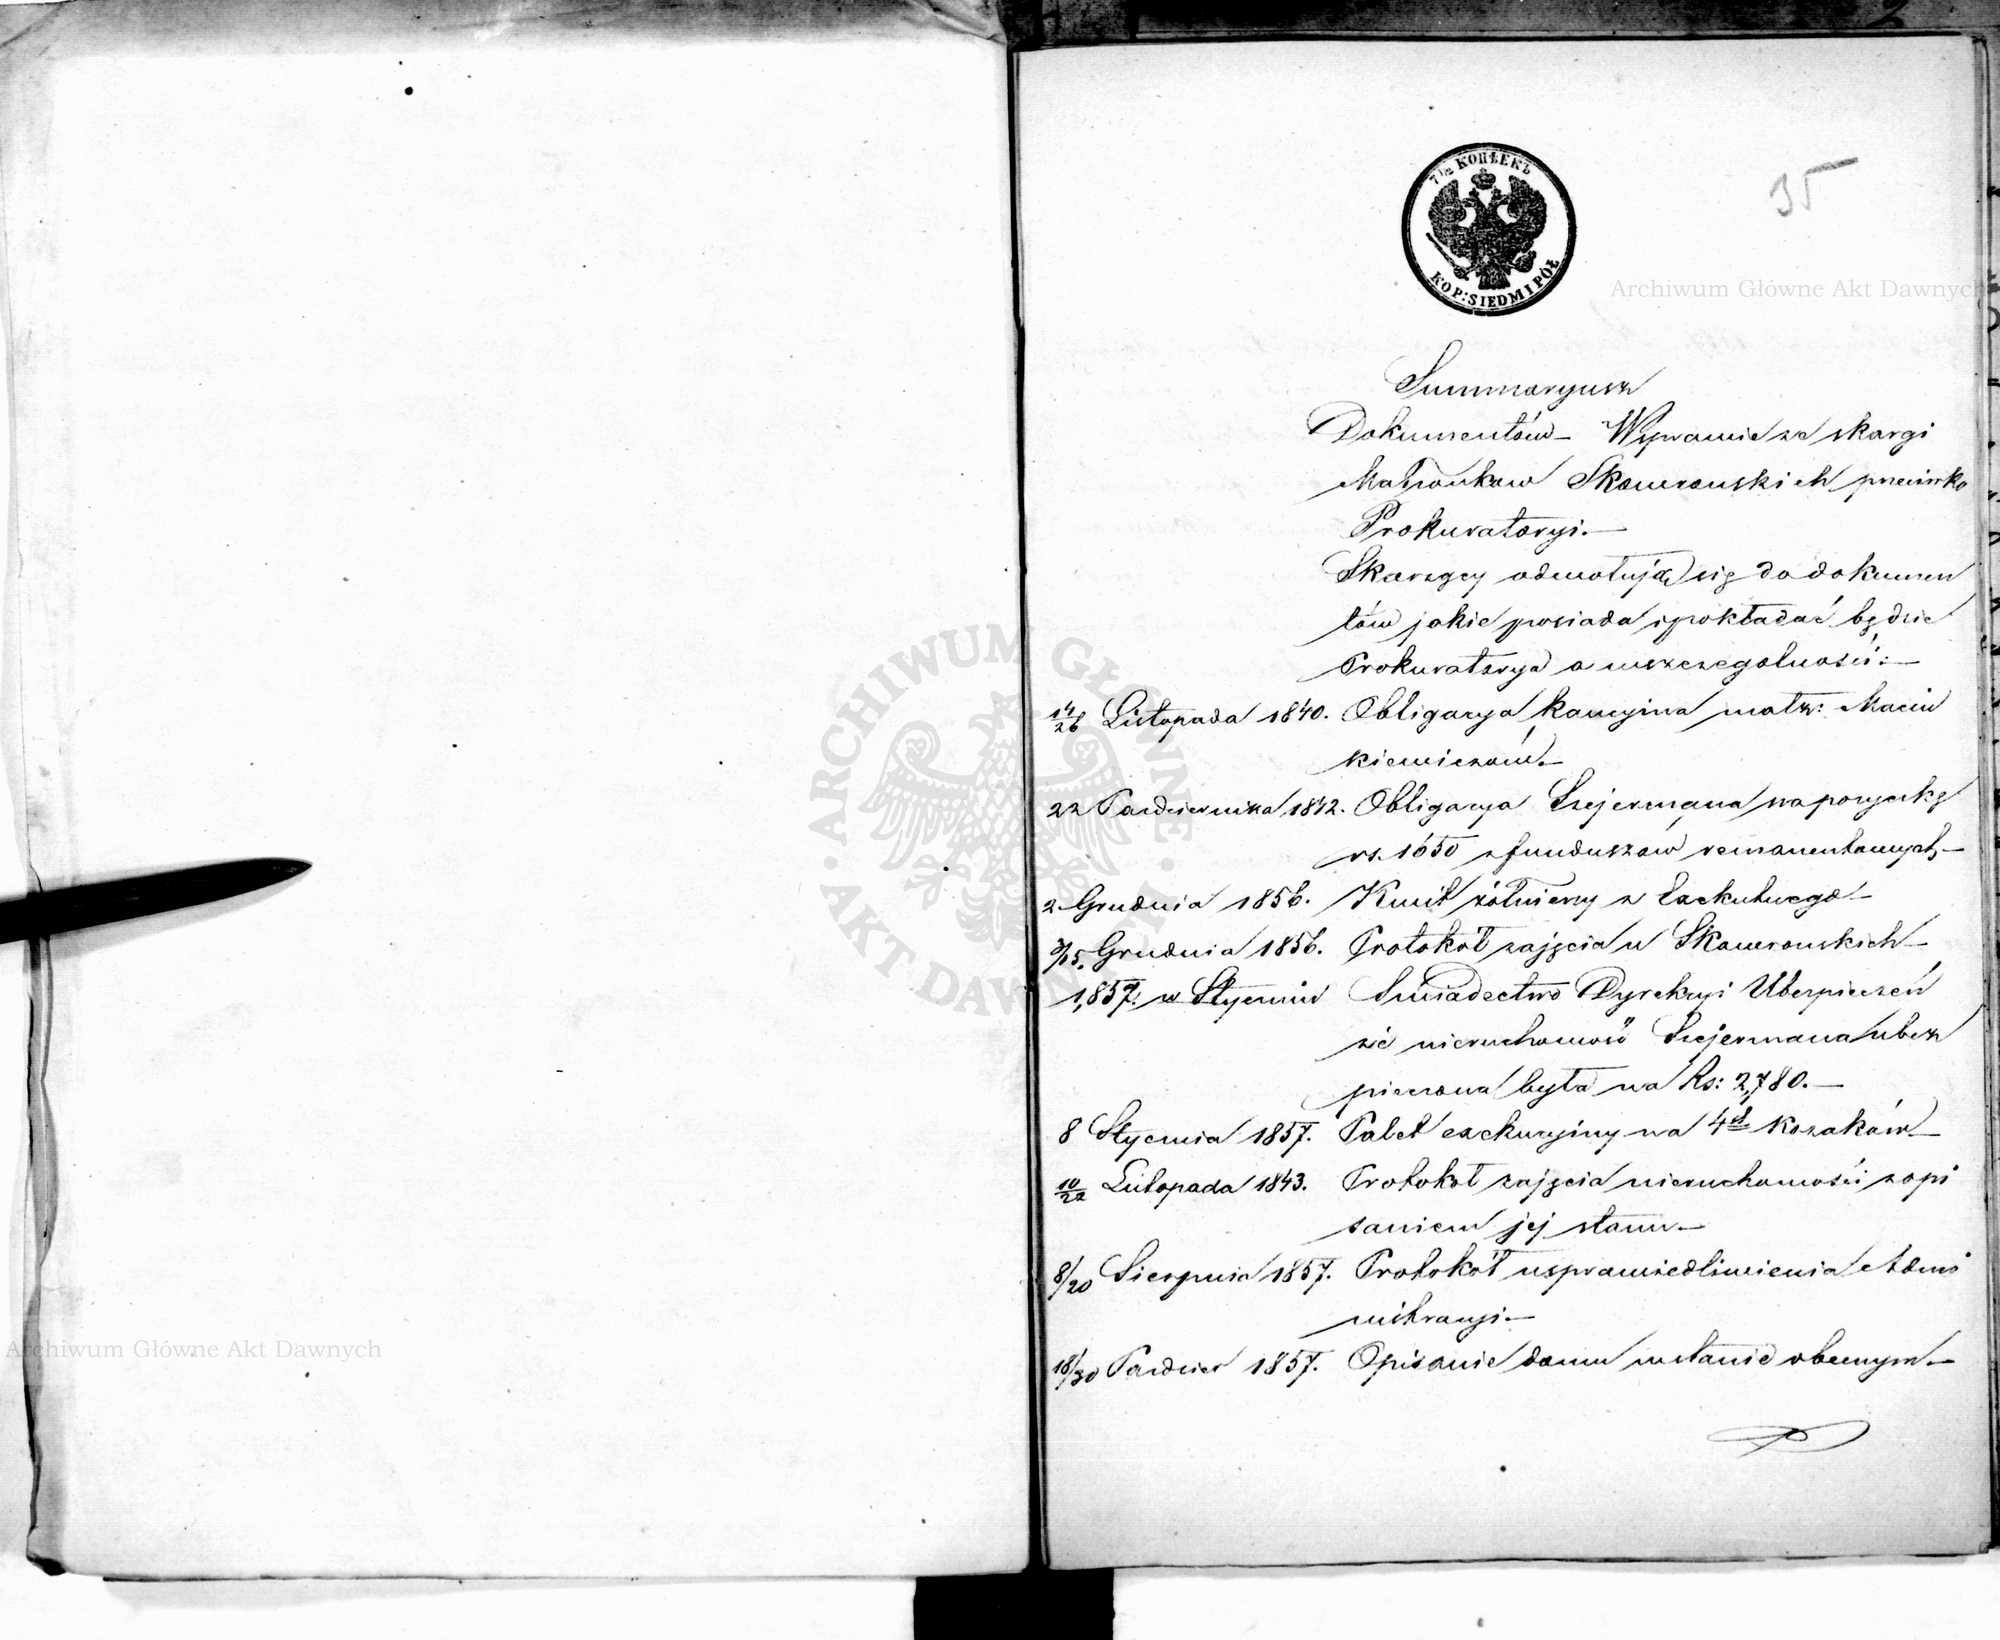 2
35
7½ КОПѢЕКЪ
KOP: SIEDM I PÓŁ
Summaryusz
Dokumentów – W sprawie ze skargi
Małżonkow Skowronskich przeciwko
Prokuratoryi. –
Skarzący odwołują się do dokumen
tów jakie posiada i pokładać będzie
Prokuratorya a w szczegolności: –
14/26 Listopada 1840. Obligacya kaucyjna małż: Marcin
kiewiczów. –
22 Pazdziernika 1842. Obligacya Szejermana na pozyczkę
rs. 1650 z funduszów remanentowych, –
2 Grudnia 1856. Kwit żołnierzy z Exekutnego –
3/15. Grudnia 1856. Protokół zajęcia u Skowronskich –
1,857. w Styczniu Swiadectwo Dyrekcyi Ubezpieczeń
że nieruchomość Szejermana ubez
pieczona była na Rs: 2,780. –
8 Stycznia 1857. Palet exekucyjny na 4ch kozaków –
10/22 Listopada 1843. Protokół zajęcia nieruchomości z opi
saniem jej stanu –
8/20 Sierpnia 1857. Protokół usprawiedliwienia Admi
nistracyi –
18/30 Pazdzier 1857. Opisanie domu w stanie obecnym –
Archiwum Główne Akt Dawnych
ARCHIWUM GŁÓWNE AKT DAWNYCH
Archiwum Główne Akt Dawnych